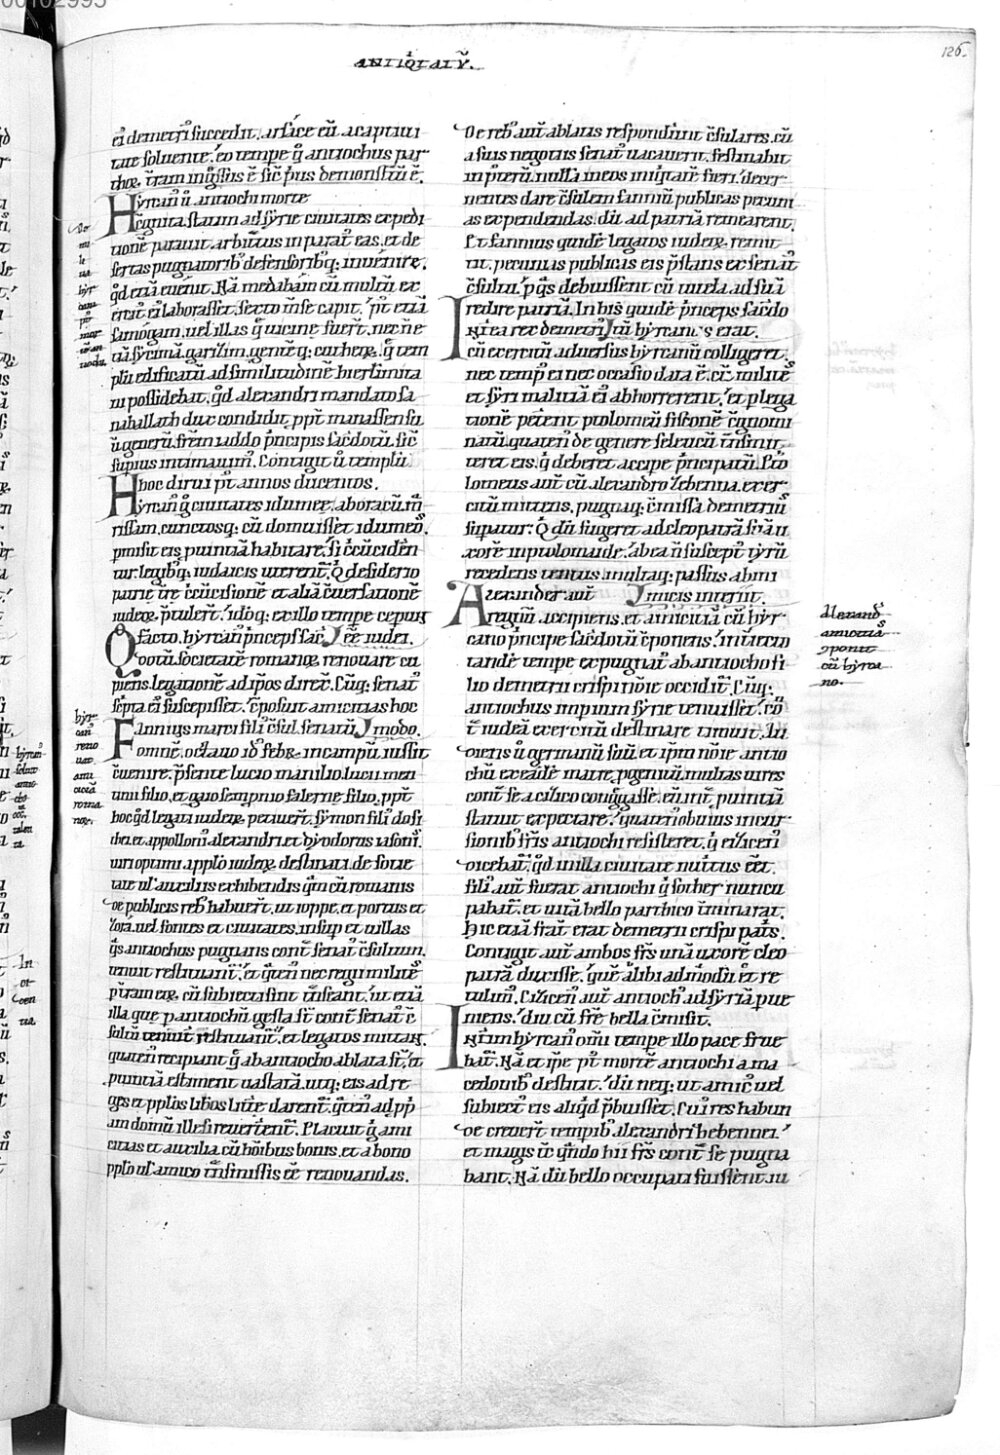 ANTIQITATŪ.
126.
ei demetri succedit. arsace eū a captiui
tate soluente. eo tempe q̇ antiochus par
thoꝝ t̄ram ing̃ssus ē sic̄ pus demonstrū ē.
Hyrcan ů antiochi morte
c̄gnita. statim ad syrie ciuitates expedi
tionē parauit. arbit̃tus inparat̃ eas. et de
sertas pugnatorib; defensoribq; inuenire.
qd etiā euenit. Nā medabam cū multū ex
ercit̃ ei laborasset. sexto m̄se capit. p̃t etiā
samogam. uel illas q̃ uicine fuer̃t. nec ne
siccimā. garizim. gentēq; cutheoꝝ. q̃ tem
plū edificatū ad similitudinē hierlimita
ni possidebat. qd alexandri mandato sa
naballath dux condidit. ppt̃ manassen su
ū generū. frem iaddo p̃ncipis sac̃dotū. sic̃
supius intimauim. Contigit ů templū
hoc dirui p̃t annos ducentos.
Hyrcan q̃ ciuitates idumeę. adoracū. m̃
rissam. cunctosq; cū domuisset idumeos.
pmisit eis puintiā habitare. si c̃cūciden
tur. legibq; iudaicis uterent̃. Q̇ desiderio
patrie t̃re c̃cūcisionē et aliā c̃uersationē
iudeoꝝ ptulert̃. idoq; ex illo tempe cepunt
Q facto. hyrcan p̃nceps sac̃ ēē iudei.
dotū. societatē romanoꝝ renouare cu
piens. legationē ad ipsos direx̃. Cūq; senat̃
sc̃pta ei suscepisset. c̃posuit amicitias hoc
Fannius marci fili c̃sul. senatū modo.
omnē. octauo id febꝝ. in campū iussit
c̃uenire. p̃sente lucio manilio. lucii men
tinii filio. et gaio sempnio falerne filio. ppt̃
hoc qd legati iudeoꝝ petiuert̃. symon fili dosi
thei. et appolloni alexandri. et dyodorus iasoni.
uiri optimi applo iudeoꝝ destinati. de socie
tate ul auxiliis exhibendis q̃m cū romanis
de publicis reb habuert̃. ut ioppe. et portus et
zora. uel fontes et ciuitates. insup et uillas
q̃s antiochus pugnans cont̃ senat̃ c̃sultum.
tenuit restituant̃. et q̃ten nec regii milites
p̃t̃ram eoꝝ. cū subiecti sint t̃nseant. ut etiā
illa que p antiochū gesta s̃t cont̃ senat̃ c̃
sultū tenuit restituant̃. et legatos mittāt.
quaten recipiant q̃ ab antiocho ablata s̃t. et
puintiā estiment uastatā. utq; eis ad re
ges et pplos libos litt̃e darent̃. q̃ten ad pp̃
am domū illesi reuertent̃. Placuit q̃ ami
citias et auxilia cū hoibus bonis. et a bono
pplo ul amico t̃nsmissis eē renouandas.
De reb aut̃ ablatis responderunt c̃sulares. cū
a suis negotiis senat̃ uacauerit. festinabit
in p̃terū. nulla in eos iniq̃tate fieri. decer
nentes dare c̃sulem fanniū publicas pecuni
as expendendas. dū ad patriā remearent.
Et fannius quidē legatos iudeoꝝ remit
tit. pecunias publicas eis p̃stans ex senat̃
c̃sultu. p q̃s debuissent cū tutela. ad suā
redire patriā. In his quidē p̃nceps sac̃do
Int̃ea rex demetri tū hyrcanus erat.
cū exercitū aduersus hyrcanū colligeret.
nec temp ei nec occasio data ē. c̃t milites
et syri malitiā ei abhorrerent. et p lega
tionē peterent ptolomeū fisconē c̃gnomi
natū. quaten de genere seleucū t̃nsmit
teret eis. q̇ deberet accipe p̃ncipatū. Pto
lomeus aut̃ cū alexandro zebenna. exer
citū mittens. pugnaq; c̃missa demetrius
supatur. Q̇ dū fugeret ad cleopatrā suā u
xorē in ptolomaide. ab ea n̄ suscept̃ tyrū
recedens tentus. multaq; passus ab ini
Alexander aut̃ micis interiit.
regnū accipiens. et amicitiā cū hyr
cano p̃ncipe sac̃dotū c̃ponens. inuicto
tandē tempe expugnat̃ ab antiocho fi
lio demetrii crispi noie occidit̃. Cūq;
antiochus impium syrie tenuisset. c̃
t̃ iudeā exercitū destinare timuit. Au
diens ů germanū suū. et ipm noie antio
chū ex eadē matre pgenitū. multas uires
cont̃ se a cizico cong̃gasse. cū int̃ puintiā
statuit expectare. quaten obuius incur
sionib fr̃is antiochi resisteret. q̇ cizicen
dicebat̃. qd in illa ciuitate nut̃tus eēt.
fili aut̃ fuerat antiochi q̇ sother nuncu
pabat̃. et uitā bello parthico t̃minarat.
hic etiā frat̃ erat demetrii crispi pat̃s.
Contigit aut̃ ambos fr̃s unā uxorē cleo
patrā duxisse. que alibi ad modū et re
tulim. Cizicen aut̃ antioch ad syriā pue
niens. diu cū fr̃e bella c̃misit.
Int̃im hyrcan omi tempe illo pace frue
bat̃. Nā et ipe p̃t mortē antiochi a ma
cedonib destitit. dū neq; ut amic uel
subiect̃ eis aliq̇d p̃buisset. Cui res habun
de creuert̃ tempib alexandri hebennei.
et magis t̃c q̃ndo hii fr̃s cont̃ se pugna
bant. Nā dū bello occupati fuissent. iu
hyr
can
reno
uat
ami
citiā
roma
noꝝ.
Alexand
amicitias
ɔponit
cū hyrca
no.